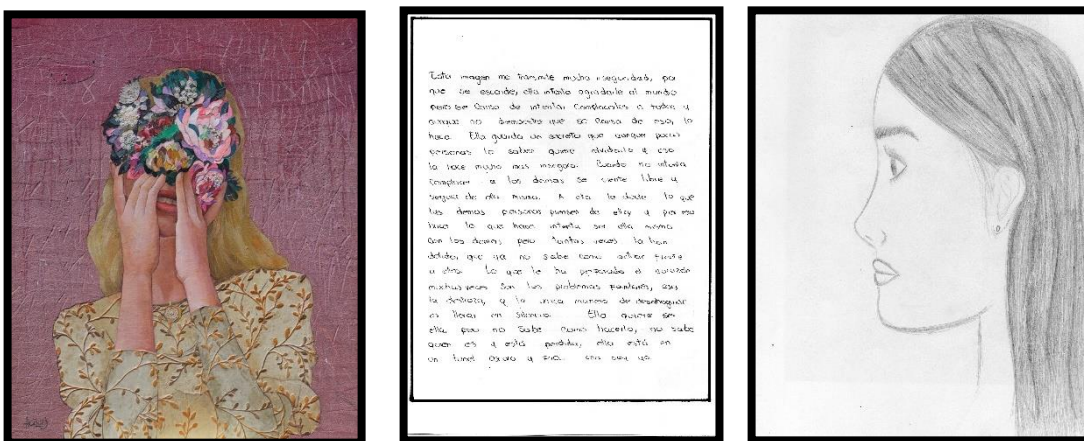 Esta imagen me transmite mucha inseguridad, por
que se esconde, ella intenta agradarle al mundo
pero se cansa de intentar complacerles a todos y
aunque no demuestre que se cansa de eso, lo
hace. Ella guarda un secreto que aunque pocas
personas lo saben quiere olvidarlo y eso
la hace mucho mas insegura. Cuando no intenta
complacer a los demas se siente libre y
segura de ella misma. A ella le duele lo que
las demas personas piensen de ella y por eso
hace lo que hace, intenta ser ella misma
con los demas, pero tantas veces la han
que ya no sabe como actuar frente
a otros. Lo que le ha el corazón
muchas veces son los problemas familiares, eso
la destroza, y la unica manera de desahogarse
es llorar en silencio. Ella quiere ser
ella pero no sabe como hacerlo, no sabe
quien es y está perdida, ella está en
un tunel oscuro y